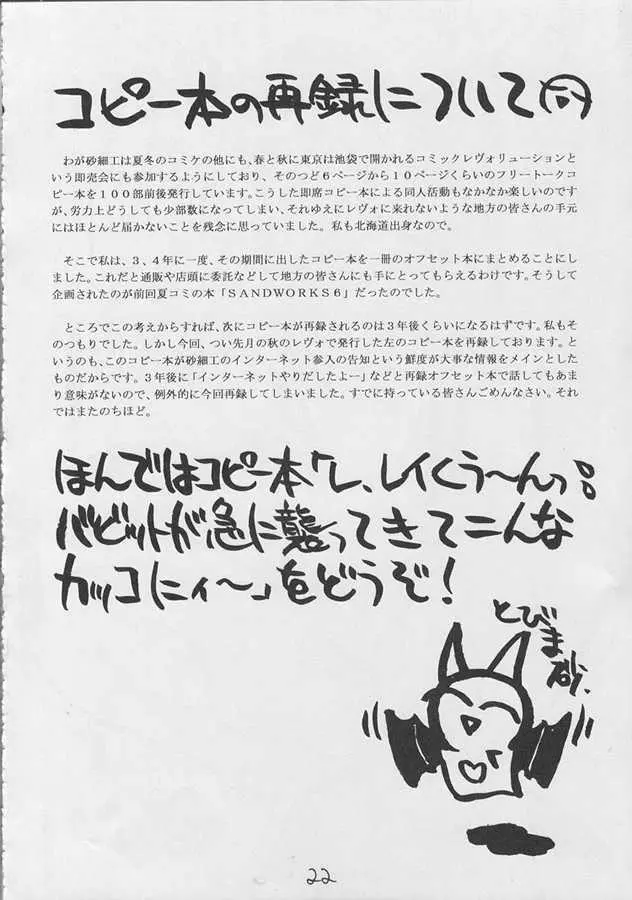 コピー本の再録について
わが砂細工は夏冬のコミケの他にも、春と秋に東京は池袋で開かれるコミックレヴォリューションと
いう即売会にも参加するようにしており、そのつど６ページから１０ページくらいのフリートーク
コピー本を１００部前後発行しています。こうした即席コピー本による同人活動もなかなか楽しいのです
が、労力上どうしても少部数になってしまい、それゆえにレヴォに来れないような地方の皆さんの手元
にはほとんど届かないことを残念に思っていました。私も北海道出身なので。
そこで私は、３、４年に一度、その期間に出したコピー本を一冊のオフセット本にまとめることにし
ました。これだと通販や店頭に委託などして地方の皆さんにも手にとってもらえるわけです。そうして
企画されたのが前回夏コミの本「ＳＡＮＤＷＯＲＫＳ６」だったのでした。
ところでこの考えからすれば、次にコピー本が再録されるのは３年後くらいになるはずです。私もそ
のつもりでした。しかし今回、つい先月の秋のレヴォで発行した左のコピー本を再録しております。と
いうのも、このコピー本が砂細工のインターネット参入の告知という鮮度が大事な情報をメインとした
ものだからです。３年後に「インターネットやりだしたよー」などと再録オフセット本で話してもあま
り意味がないので、例外的に今回再録してしまいました。すでに持っている皆さんごめんなさい。それ
ではまたのちほど。
ほんではコピー本「レ、レイくぅ〜んっ!!
バビットが急に襲ってきてこんな
カッコにィ〜」をどうぞ!
とびま砂、
22